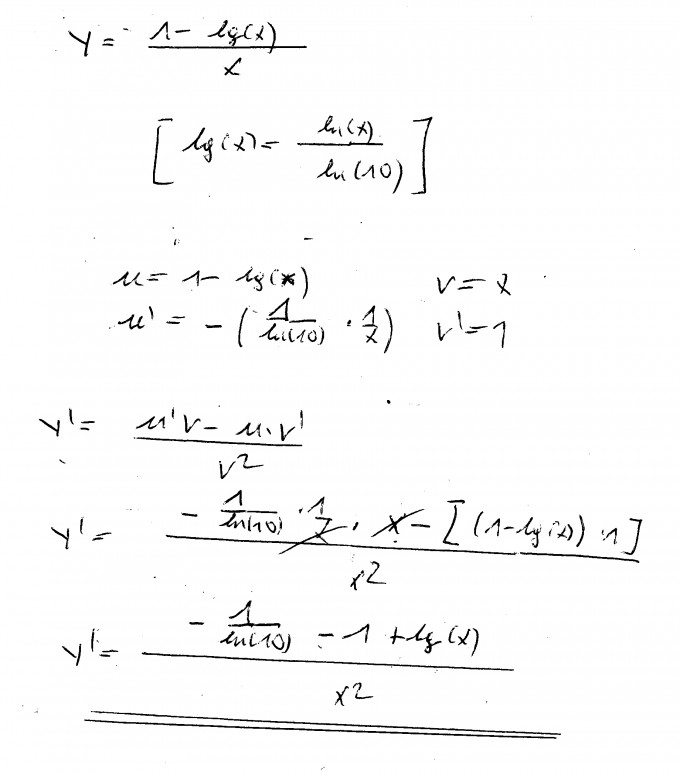 y = (1 - lg(x)) / x
[ lg(x) = ln(x) / ln(10) ]
u = 1 - lg(x)    v = x
u' = - ( 1/ln(10) · 1/x )    v' = 1
y' = (u'v - u·v') / v²
y' = (- 1/ln(10) · 1/x · x - [ (1-lg(x)) · 1 ]) / x²
y' = (- 1/ln(10) - 1 + lg(x)) / x²